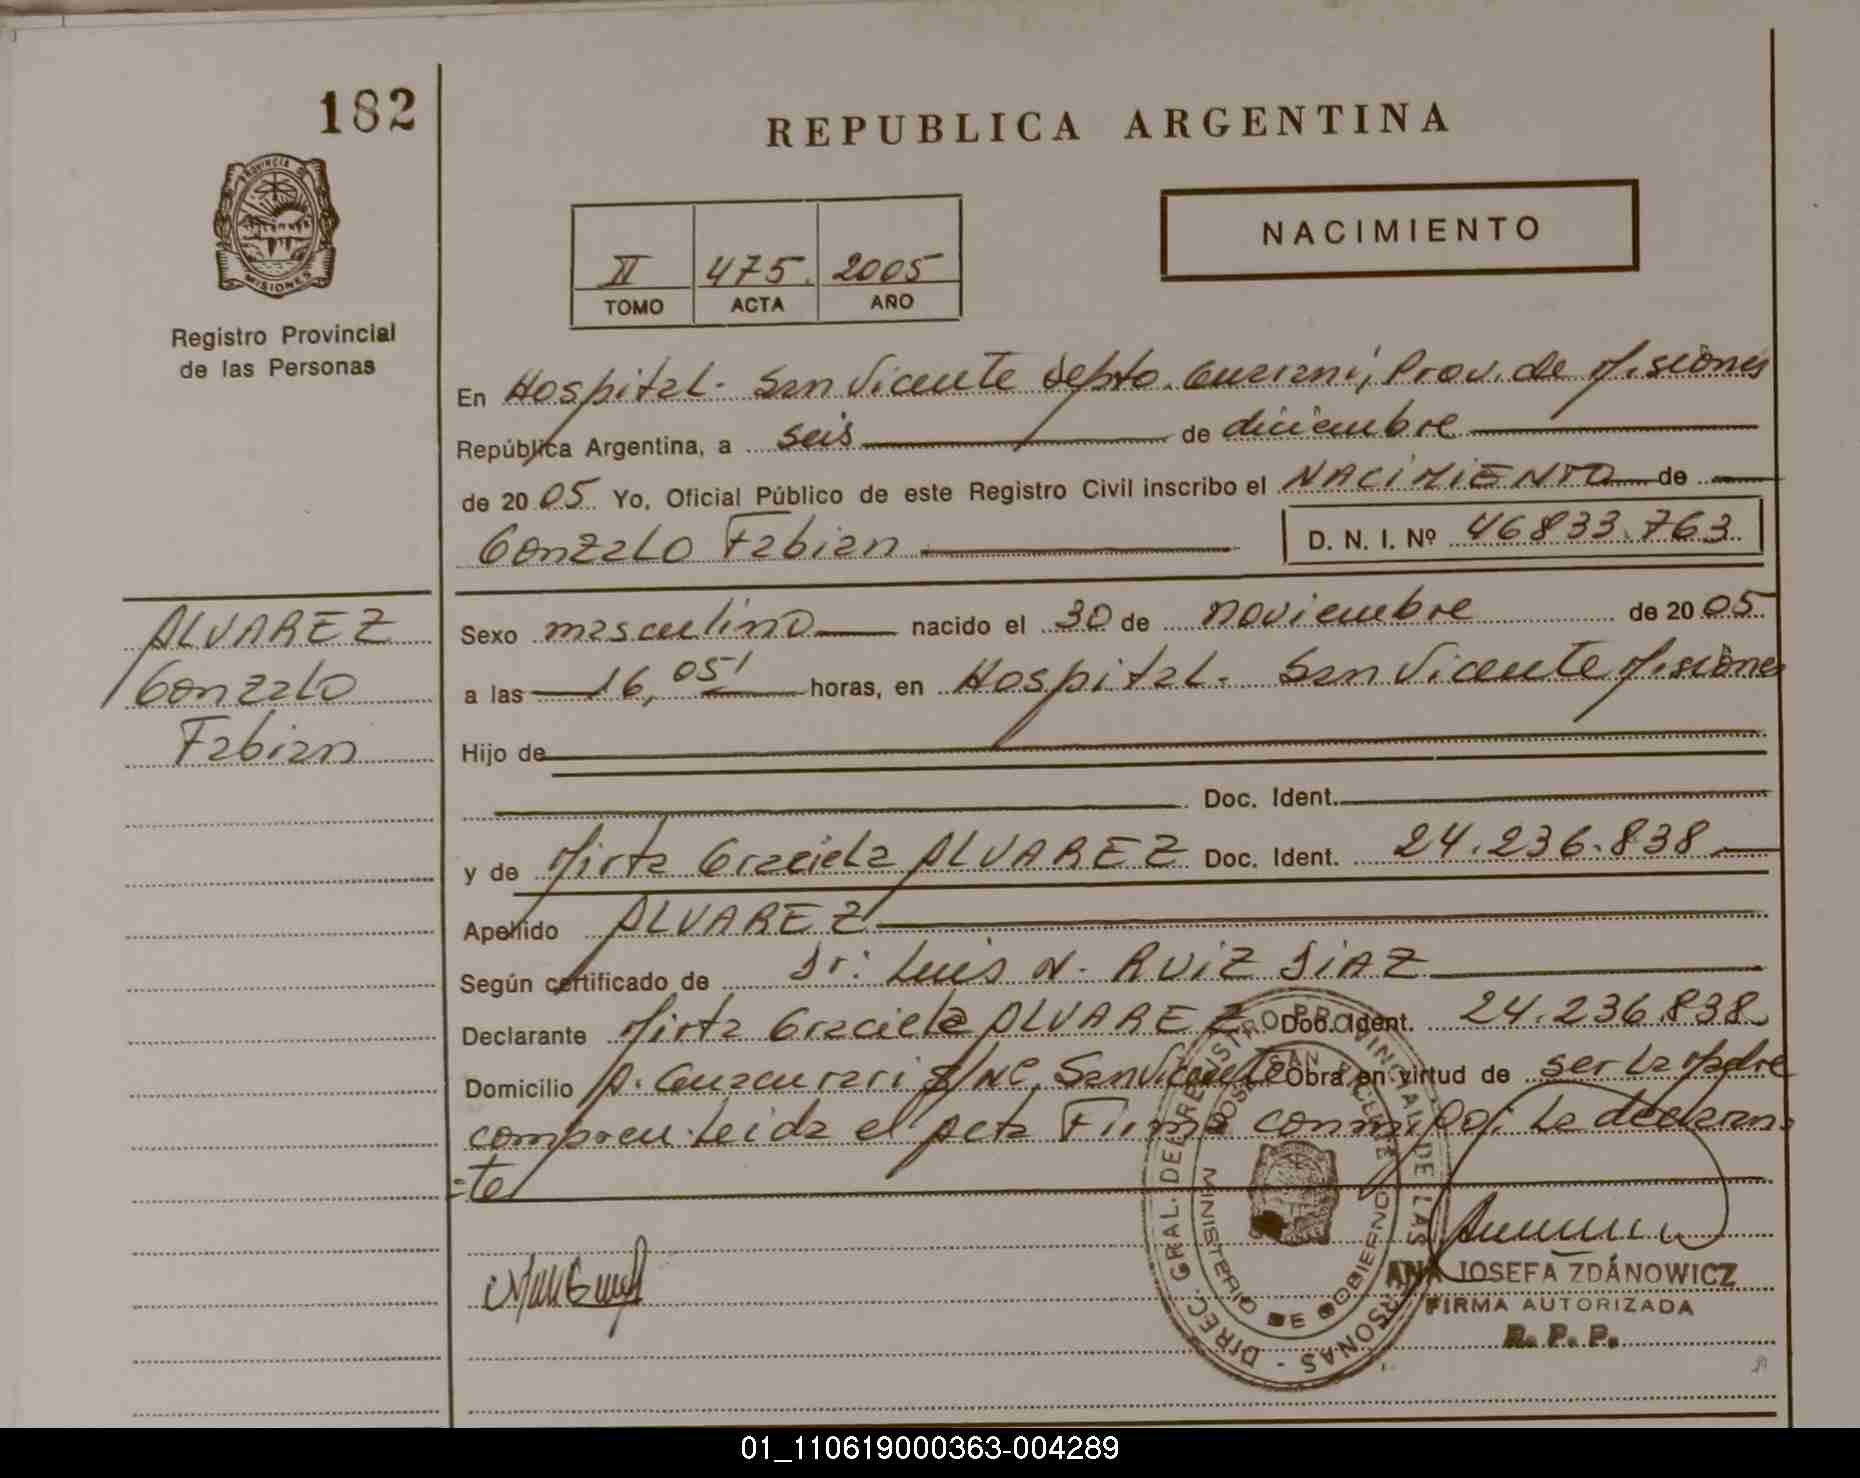 182
REPUBLICA ARGENTINA
PROVINCIA DE
MISIONES
NACIMIENTO
II 475. 2005
TOMO ACTA AÑO
Registro Provincial
de las Personas
En Hospital - San Vicente Depto. Guaraní, Prov. de Misiones
República Argentina, a seis de diciembre
de 2005 Yo, Oficial Público de este Registro Civil inscribo el NACIMIENTO de
Gonzalo Fabian D. N. I. Nº 46833.763
ALVAREZ
Gonzalo
Fabian
Sexo masculino nacido el 30 de noviembre de 2005
a las 16,05' horas, en Hospital - San Vicente Misiones
Hijo de
Doc. Ident.
y de Mirta Graciela ALVAREZ Doc. Ident. 24.236.838
Apellido ALVAREZ
Según certificado de Dr: Luis N. RUIZ DIAZ
Declarante Mirta Graciela ALVAREZ Doc. Ident. 24.236.838
Domicilio A. Guacurari S/Nº, San Vicente Obra en virtud de ser la Madre
compren. Leida el Acta Firma conmigo: la declaran
=te
DIREC. GRAL. DEL REGISTRO PROVINCIAL DE LAS PERSONAS
SAN VICENTE
MINISTERIO DE GOBIERNO
ANA JOSEFA ZDÁNOWICZ
FIRMA AUTORIZADA
R. P. P.
01_110619000363-004289